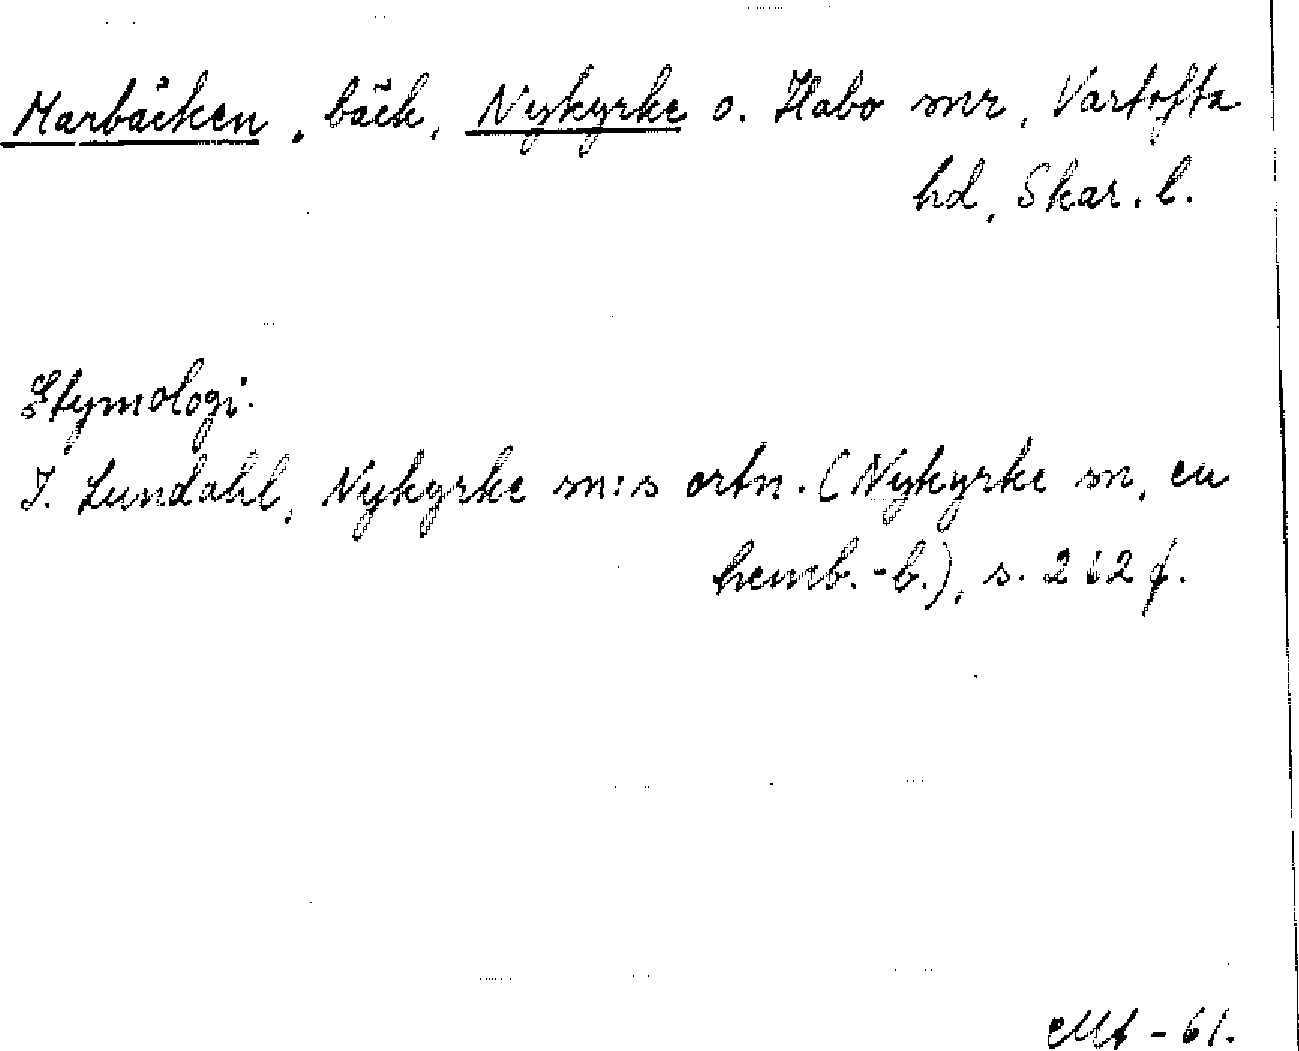 Marbäcken, bäck, Nykyrke o. Habo snr, Vartofta
hd, Skar. l.
Etymologi.
I. Lundahl, Nykyrke sn:s ortn. (Nykyrke sn, en
hemb.-b.), s. 212 f.
-61.